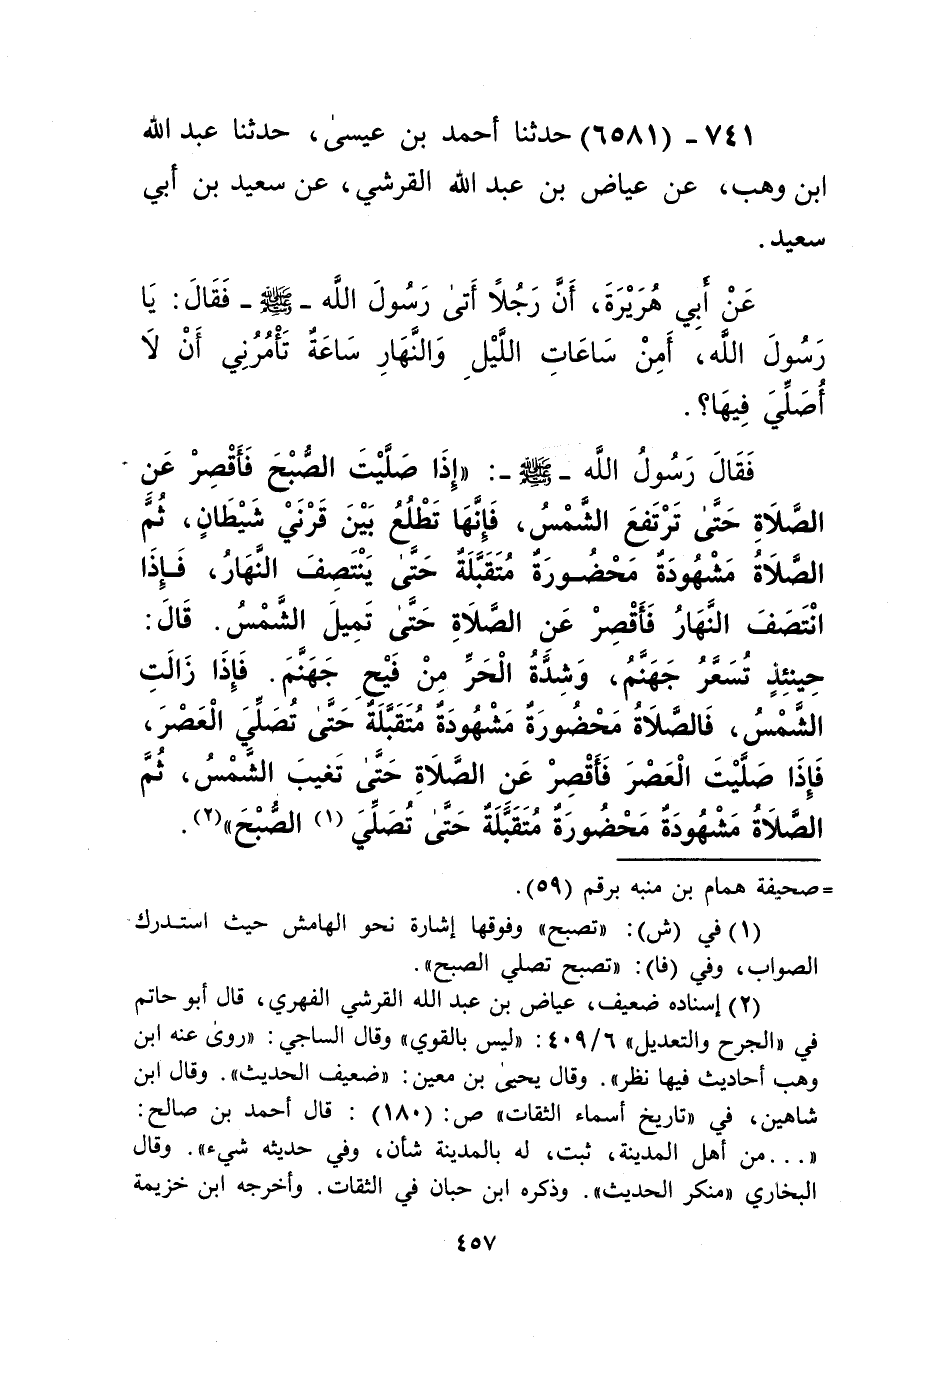 ٧٤١ - (٦٥٨١) حدثنا أحمد بن عيسىٰ، حدثنا عبد الله
ابن وهب، عن عياض بن عبد الله القرشي، عن سعيد بن أبي
سعيد.
عَنْ أَبِي هُرَيْرَةَ، أَنَّ رَجُلًا أَتىٰ رَسُولَ اللَّه ـ ﷺ ـ فَقَالَ: يَا
رَسُولَ اللَّه، أَمِنْ سَاعَاتِ اللَّيْلِ وَالنَّهَارِ سَاعَةٌ تَأْمُرُنِي أَنْ لَا
أُصَلِّيَ فِيهَا؟.
فَقَالَ رَسُولُ اللَّه ـ ﷺ ـ: «إِذَا صَلَّيْتَ الصُّبْحَ فَأَقْصِرْ عَنِ
الصَّلَاةِ حَتَّىٰ تَرْتَفِعَ الشَّمْسُ، فَإِنَّهَا تَطْلُعُ بَيْنَ قَرْنَيْ شَيْطَانٍ، ثُمَّ
الصَّلَاةُ مَشْهُودَةٌ مَحْضُورَةٌ مُتَقَبَّلَةٌ حَتَّىٰ يَنْتَصِفَ النَّهَارُ، فَإِذَا
انْتَصَفَ النَّهَارُ فَأَقْصِرْ عَنِ الصَّلَاةِ حَتَّىٰ تَمِيلَ الشَّمْسُ. قَالَ:
حِينئِذٍ تُسَعَّرُ جَهَنَّمُ، وَشِدَّةُ الْحَرِّ مِنْ فَيْحِ جَهَنَّمَ. فَإِذَا زَالَتِ
الشَّمْسُ، فَالصَّلَاةُ مَحْضُورَةٌ مَشْهُودَةٌ مُتَقَبَّلَةٌ حَتَّىٰ تُصَلِّيَ الْعَصْرَ،
فَإِذَا صَلَّيْتَ الْعَصْرَ فَأَقْصِرْ عَنِ الصَّلَاةِ حَتَّىٰ تَغِيبَ الشَّمْسُ، ثُمَّ
الصَّلَاةُ مَشْهُودَةٌ مَحْضُورَةٌ مُتَقَبَّلَةٌ حَتَّىٰ تُصَلِّيَ (١) الصُّبْحَ»(٢).
= صحيفة همام بن منبه برقم (٥٩).
(١) في (ش): «تصبح» وفوقها إشارة نحو الهامش حيث استدرك
الصواب، وفي (فا): «تصبح تصلي الصبح».
(٢) إسناده ضعيف، عياض بن عبد الله القرشي الفهري، قال أبو حاتم
في «الجرح والتعديل» ٤٠٩/٦: «ليس بالقوي» وقال الساجي: «روىٰ عنه ابن
وهب أحاديث فيها نظر». وقال يحيىٰ بن معين: «ضعيف الحديث». وقال ابن
شاهين، في «تاريخ أسماء الثقات» ص: (١٨٠) : قال أحمد بن صالح:
«...من أهل المدينة، ثبت، له بالمدينة شأن، وفي حديثه شيء». وقال
البخاري «منكر الحديث». وذكره ابن حبان في الثقات. وأخرجه ابن خزيمة
٤٥٧